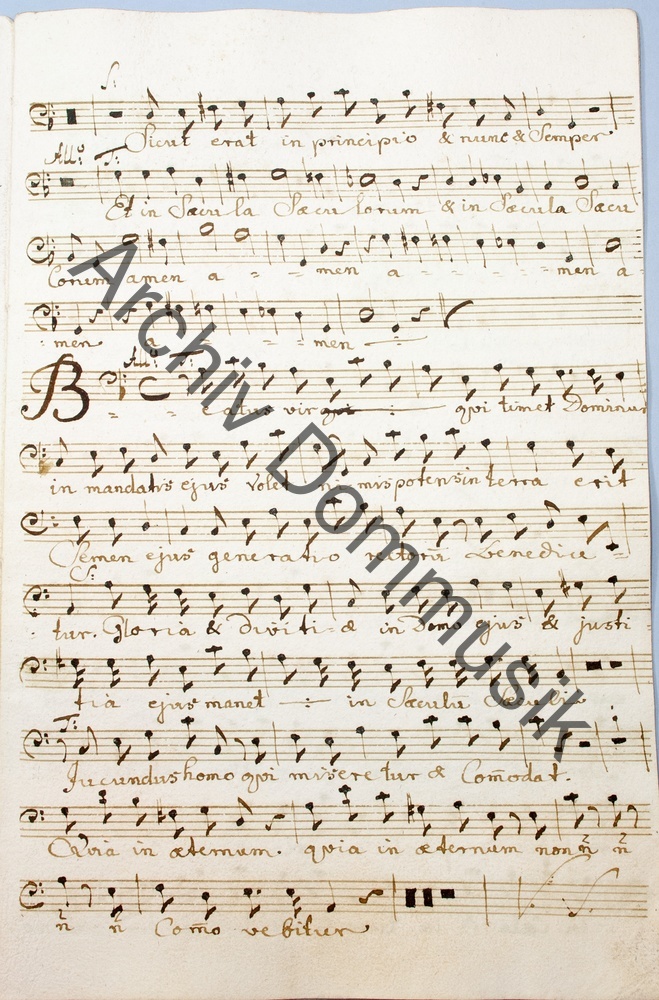 S:
Sicut erat in principio & nunc & Semper
All:º T:
Et in Sæcu la Sæcu lorum & in Sæcula Sæcu
lorum amen a - - men a - - - - men a
men a - - men
All:º T:
B - - eatus vir qui timet Dominus
in mandatis ejus volet nimis potens in terra erit
Semen ejus generatio rectorū benedice -
S:
tur. Gloria & Diviti-æ in Domo ejus & justi-
tia ejus manet in Sæculū Sæculi
T:
Jucundus homo qvi misere tur & Com̄odat.
Qvia in æternum. qvia in æternum non n̄ n̄
n̄ n̄ Com̄o vebitur
Archiv Dommusik